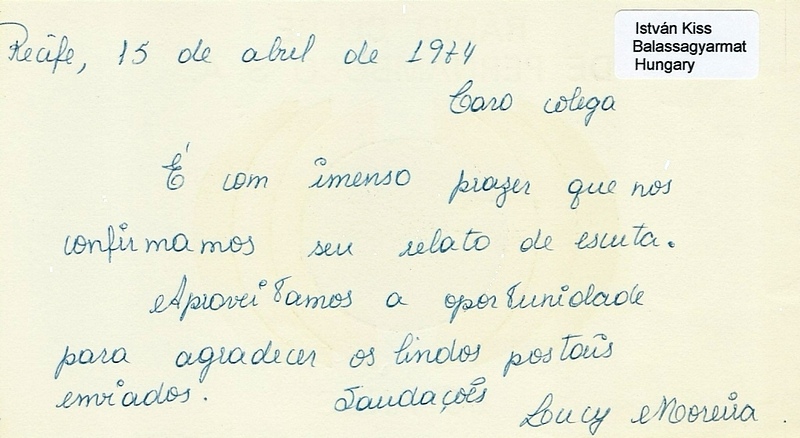 Recife, 15 de abril de 1974
István Kiss
Balassagyarmat
Hungary
Caro colega
É com imenso prazer que nos
confirmamos seu relato de escuta.
Aproveitamos a oportunidade
para agradecer os lindos postais
enviados. Saudações
Lucy Moreira